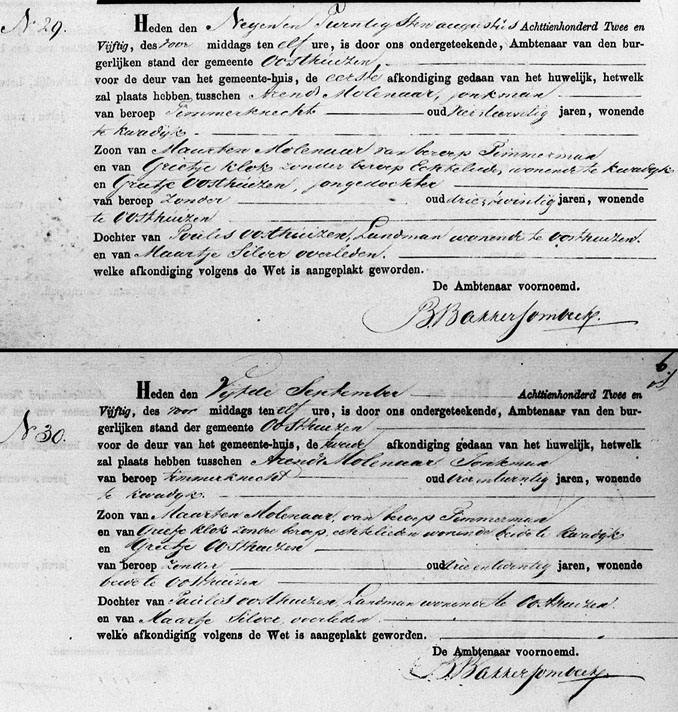 N 29.
Heden den Negen en Twintigsten augustus Achttienhonderd Twee en
Vijftig, des voor middags ten elf ure, is door ons ondergeteekende, Ambtenaar van den bur-
gerlijken stand der gemeente Oosthuizen,
voor de deur van het gemeente-huis, de eerste afkondiging gedaan van het huwelijk, hetwelk
zal plaats hebben tusschen Arend Molenaar, jonkman
van beroep Timmerknecht oud jaren, wonende
te kwadijk
Zoon van Maarten Molenaar van beroep Timmerman
en van Grietje Klok zonder beroep Echtelieden, wonende te kwadijk
en Grietje Oosthuizen, jongedochter
van beroep Zonder oud drie en twintig jaren, wonende
te Oosthuizen
Dochter van Paulus Oosthuizen, Landman wonende te Oosthuizen.
en van Maartje Silver overleden.
welke afkondiging volgens de Wet is aangeplakt geworden.
De Ambtenaar voornoemd.
B. Bakker
6.
Heden den Vijfde September Achttienhonderd Twee en
Vijftig, des voor middags ten elf ure, is door ons ondergeteekende, Ambtenaar van den bur-
N 30.
gerlijken stand der gemeente Oosthuizen
voor de deur van het gemeente-huis, de tweede afkondiging gedaan van het huwelijk, hetwelk
zal plaats hebben tusschen Arend Molenaar Jonkman
van beroep timmerknecht oud drie en twintig jaren, wonende
te kwadijk
Zoon van Maarten Molenaar, van beroep Timmerman
en van Grietje Klok zonder beroep, echtelieden wonende beide te kwadijk
en Grietje Oosthuizen
van beroep zonder oud drie en twintig jaren, wonende
beide te Oosthuizen
Dochter van Paulus Oosthuizen, Landman wonende te Oosthuizen.
en van Maartje Silver, overleden
welke afkondiging volgens de Wet is aangeplakt geworden.
De Ambtenaar voornoemd.
B. Bakker